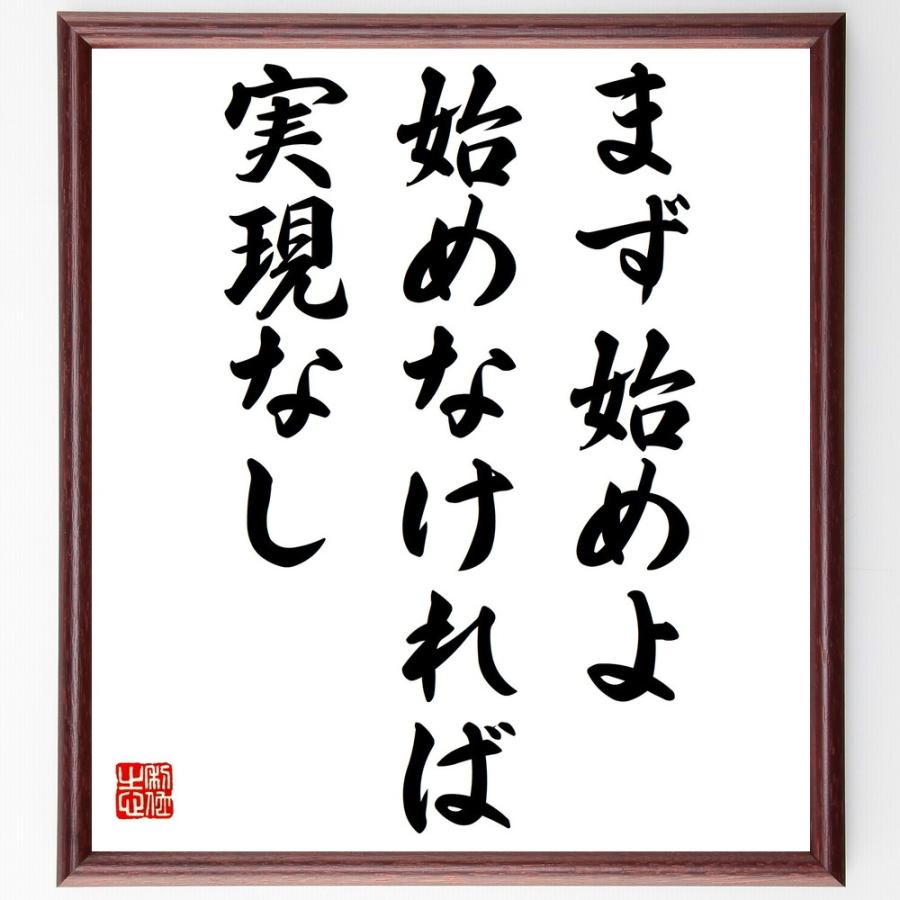 まず始めよ
始めなければ
実現なし